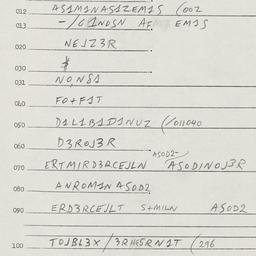 012 AS1M1NAS1ZEM1S (002
013 -/G1NDSN AF EM1S
020 NEJZ3R
030
031 NONS1
040 FO+F1T
050 D1L1B1D1NUZ (/011040
060 D3ROJ3R ASOD2-
070 ERTMIRD3RCEJLN ASODINOJ3R
080 ANROM1NASOD2
090 ERD3RCEJLT S+MILN ASOD2
100 TOJBL3X/3RHESRN1T (296